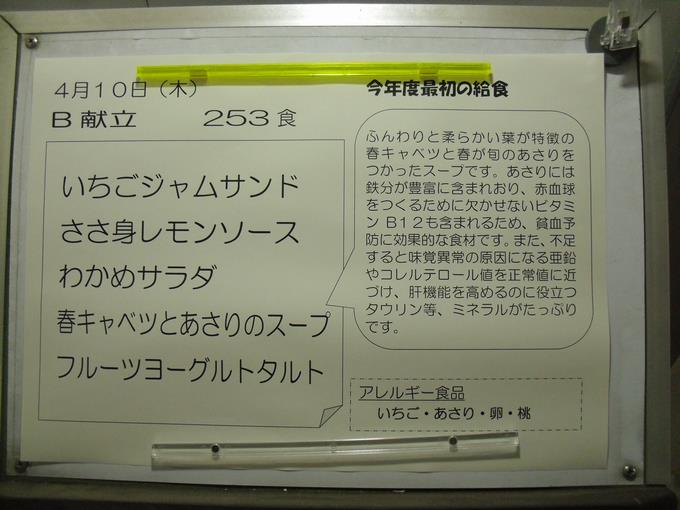 4月10日（木）
今年度最初の給食
B献立 253食
いちごジャムサンド
ささ身レモンソース
わかめサラダ
春キャベツとあさりのスープ
フルーツヨーグルトタルト
ふんわりと柔らかい葉が特徴の
春キャベツと春が旬のあさりを
つかったスープです。あさりには
鉄分が豊富に含まれおり、赤血球
をつくるために欠かせないビタミ
ン B12も含まれるため、貧血予
防に効果的な食材です。また、不足
すると味覚異常の原因になる亜鉛
やコレルテロール値を正常値に近
づけ、肝機能を高めるのに役立つ
タウリン等、ミネラルがたっぷり
です。
アレルギー食品
いちご・あさり・卵・桃